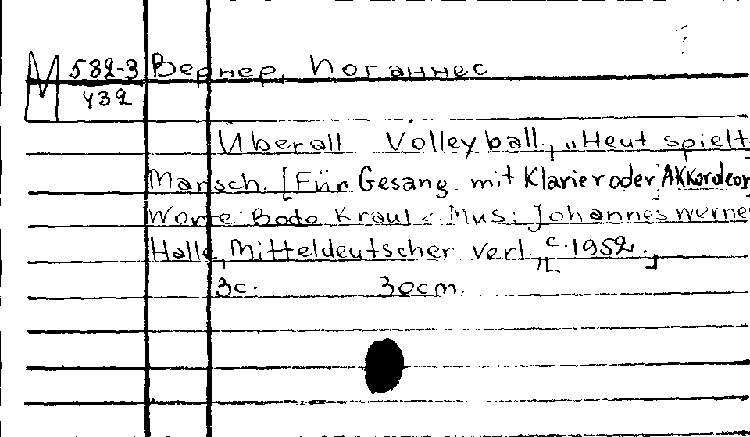 М 582-3 Вернер, Иоганнес
У32
Überall Volleyball, „Heut spielt
Marsch. [Für Gesang mit Klavier oder Akkordeon
Worte: Bodo Krautz. Mus: Johannes Werne
Halle, Mitteldeutscher Verl., c. 1952.
3c. 30cm.